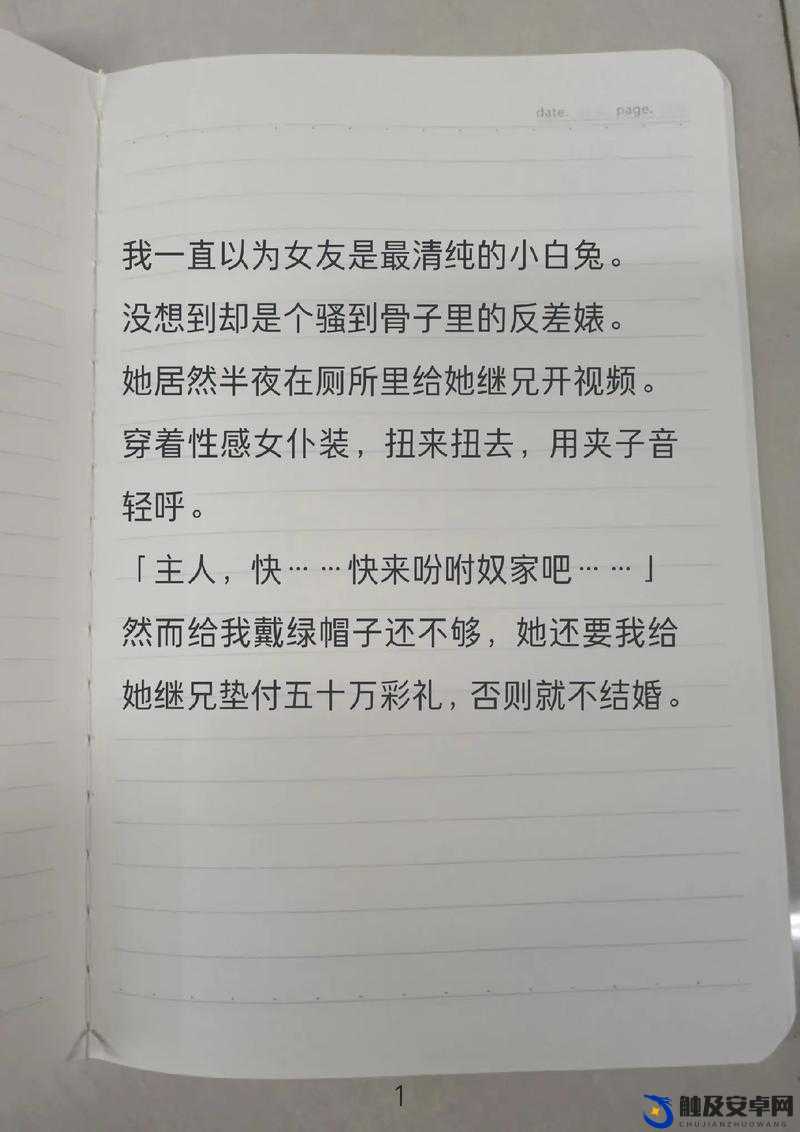 date. page.
我一直以为女友是最清纯的小白兔。
没想到却是个骚到骨子里的反差婊。
她居然半夜在厕所里给她继兄开视频。
穿着性感女仆装，扭来扭去，用夹子音
轻呼。
「主人，快……快来吩咐奴家吧……」
然而给我戴绿帽子还不够，她还要我给
她继兄垫付五十万彩礼，否则就不结婚。
1
触及安卓网
CHUJIANZHUOWANG